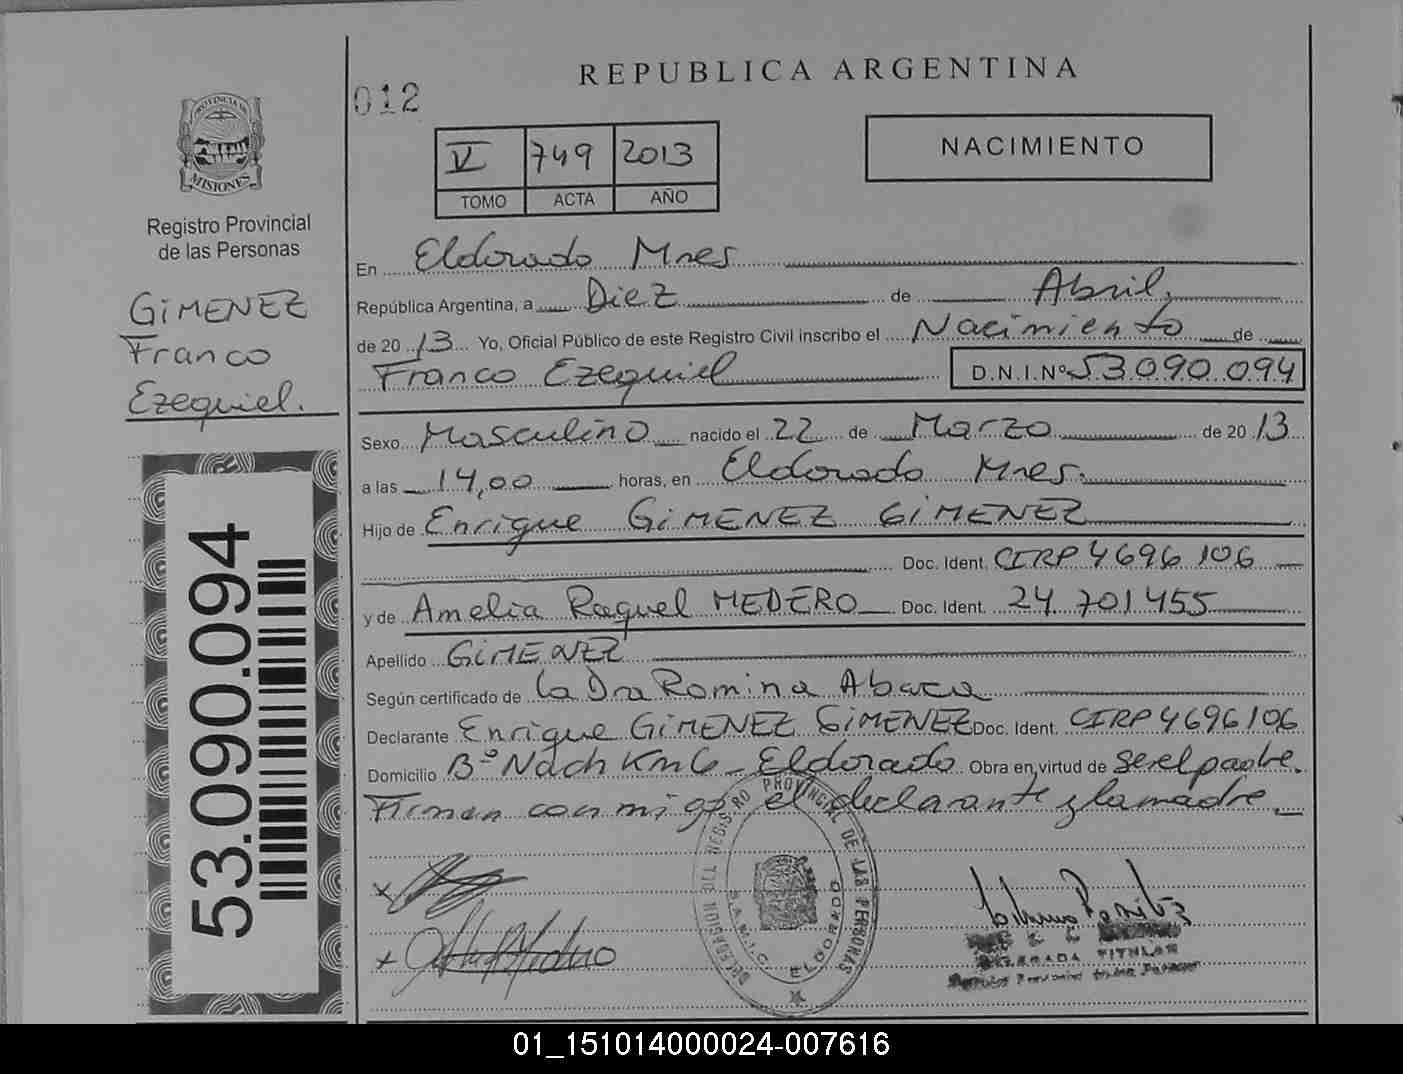 REPUBLICA ARGENTINA
012
PROVINCIA DE
MISIONES
Registro Provincial
de las Personas
GIMENEZ
Franco
Ezequiel.
53.090.094
V 749 2013
TOMO ACTA AÑO
NACIMIENTO
En Eldorado Mnes
República Argentina, a Diez de Abril,
de 2013 Yo, Oficial Público de este Registro Civil inscribo el Nacimiento de
Franco Ezequiel D.N.I.Nº 53.090.094
Sexo Masculino nacido el 22 de Marzo de 2013
a las 14,00 horas, en Eldorado Mnes.
Hijo de Enrique GIMENEZ GIMENEZ
Doc. Ident. CIRP 4696 106
y de Amelia Raquel MEDERO Doc. Ident. 24 701 455
Apellido GIMENEZ
Según certificado de la Dra Romina Abaca
Declarante Enrique GIMENEZ GIMENEZ Doc. Ident. CIRP 4696106
Domicilio Bº Nach Km 6 - Eldorado Obra en virtud de ser el padre.
Firman conmigo el declarante y la madre.
DELEGACION DEL REGISTRO PROVINCIAL DE LAS PERSONAS
ELDORADO
TITULAR
01_151014000024-007616